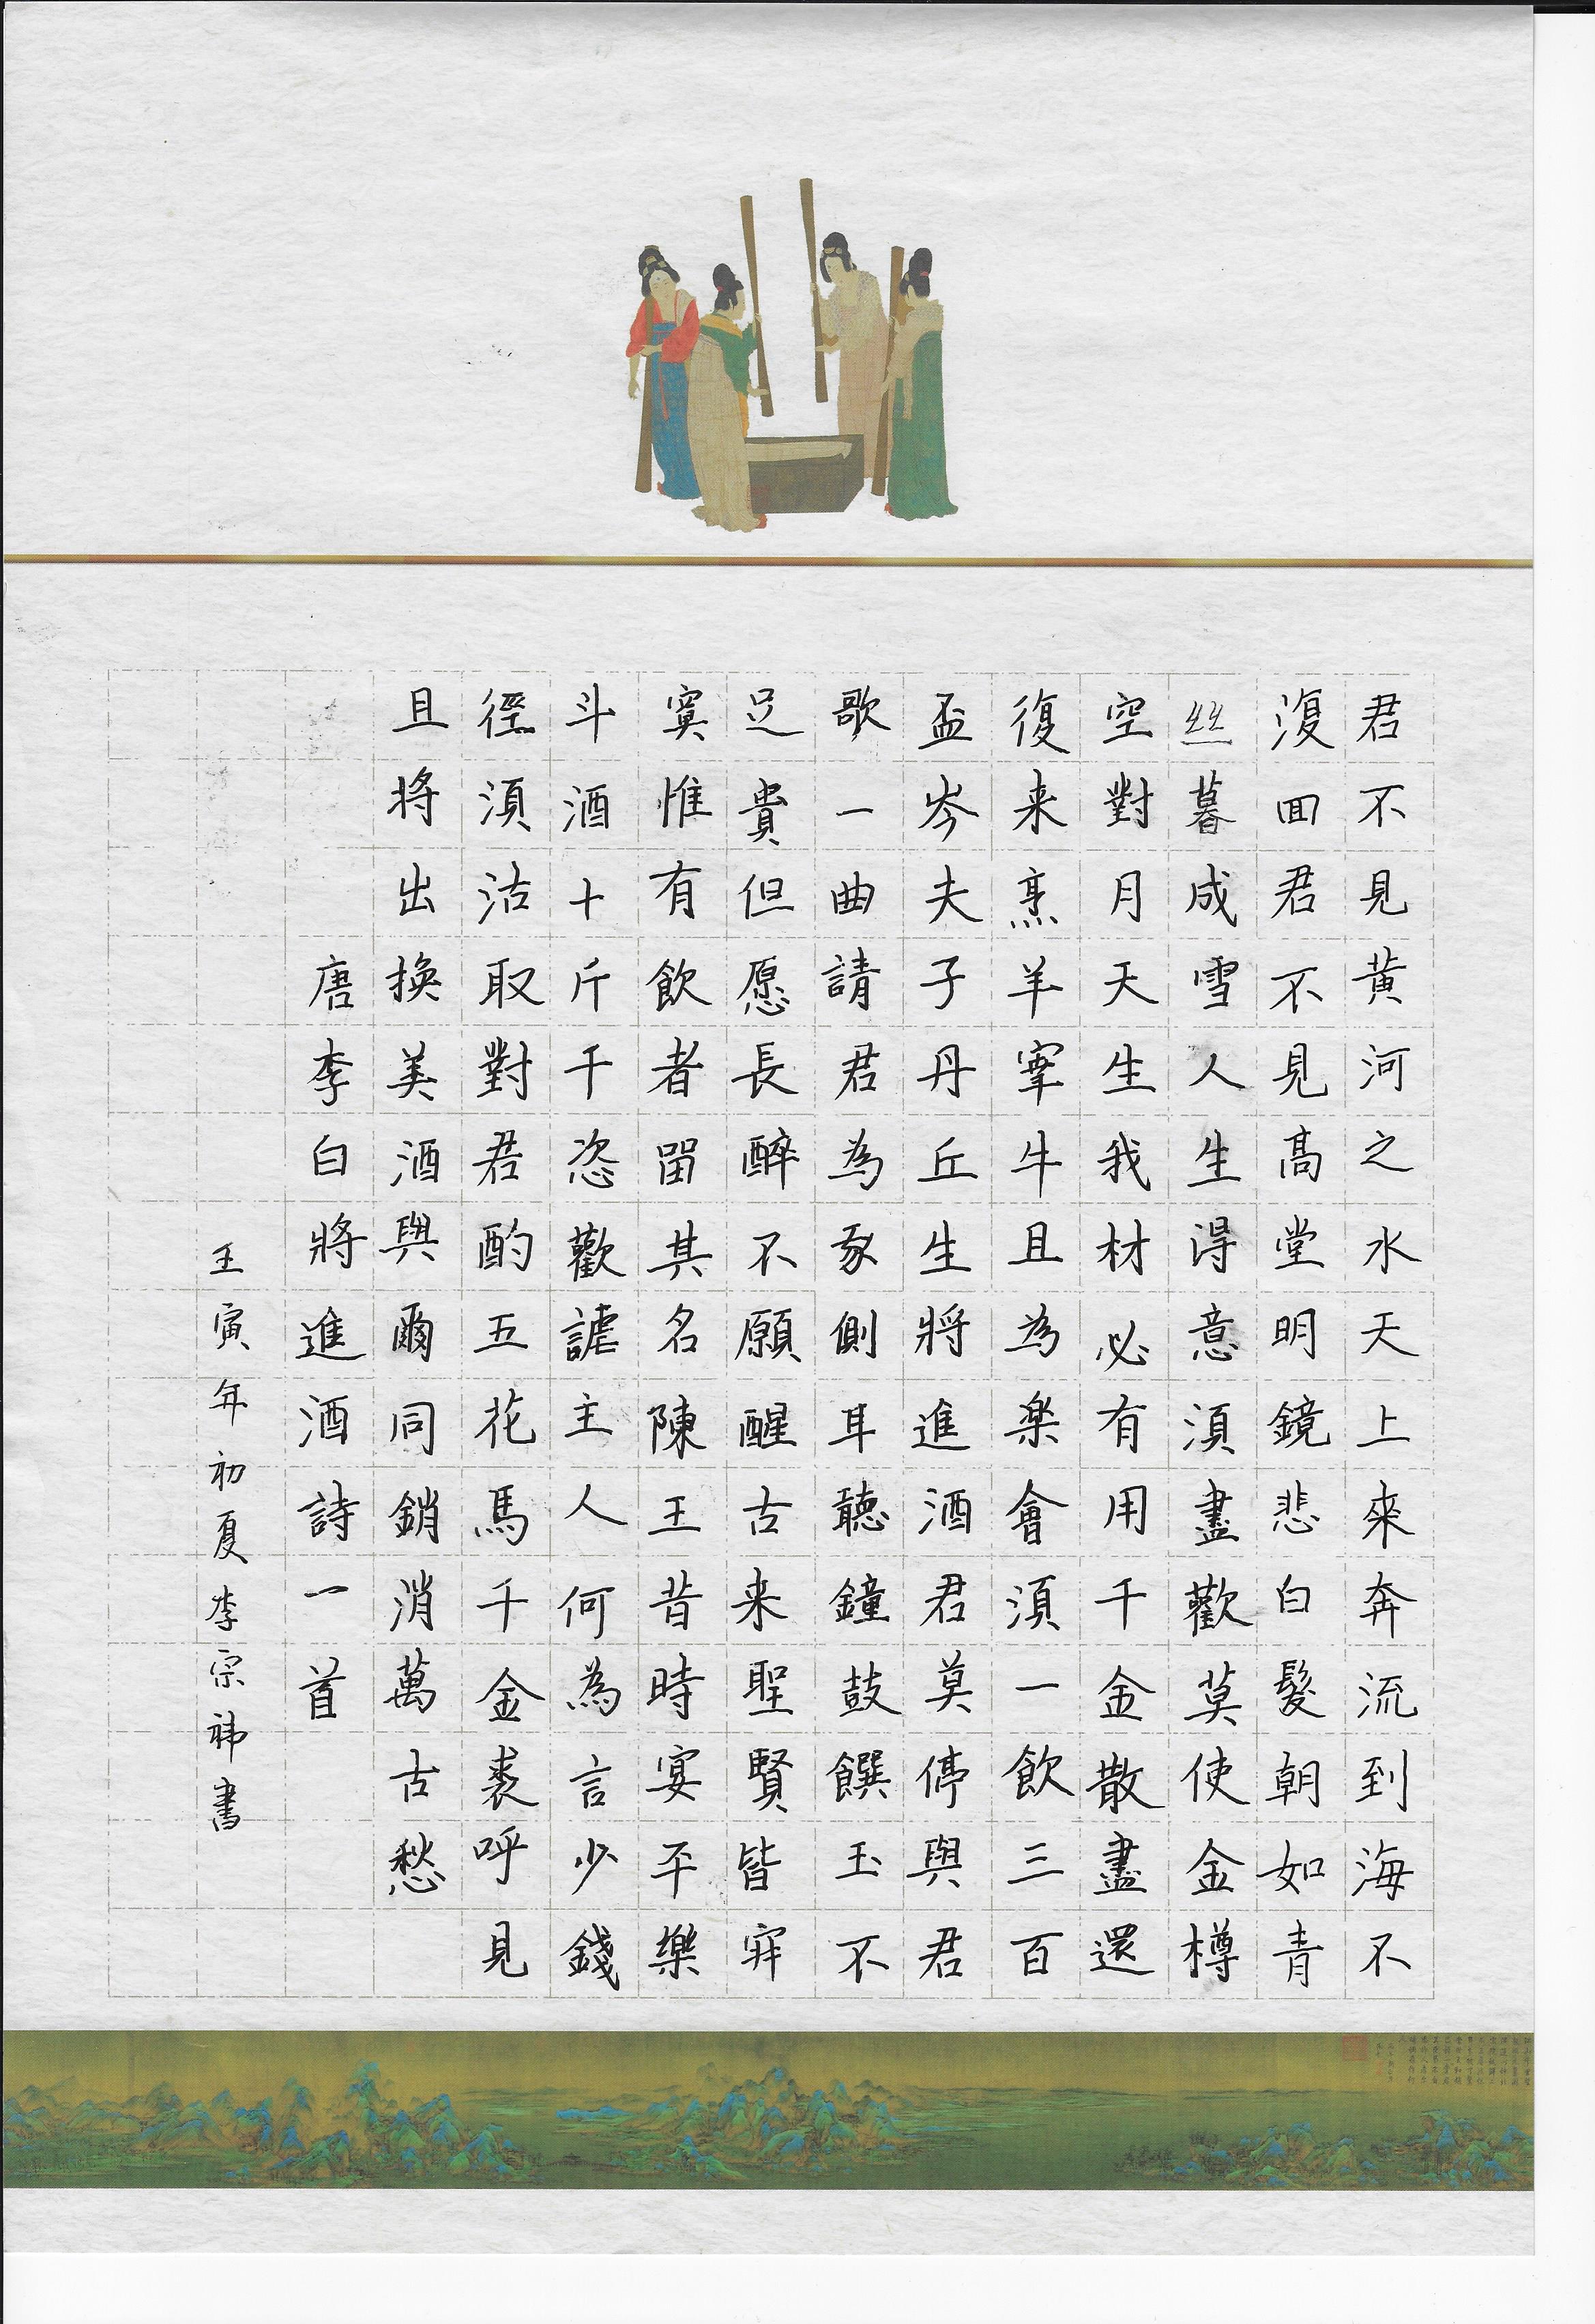 君不見黃河之水天上來奔流到海不
復回君不見高堂明鏡悲白髮朝如青
丝暮成雪人生得意須盡歡莫使金樽
空對月天生我材必有用千金散盡還
復来烹羊宰牛且為樂會須一飲三百
盃岑夫子丹丘生將進酒君莫停與君
歌一曲請君為我側耳聽鐘鼓饌玉不
足貴但愿長醉不願醒古来聖賢皆寂
寞惟有飲者留其名陳王昔時宴平樂
斗酒十斤千恣歡謔主人何為言少錢
徑須沽取對君酌五花馬千金裘呼見
且将出換美酒與爾同銷消萬古愁
唐李白將進酒詩一首
王寅年初夏李宗祎書